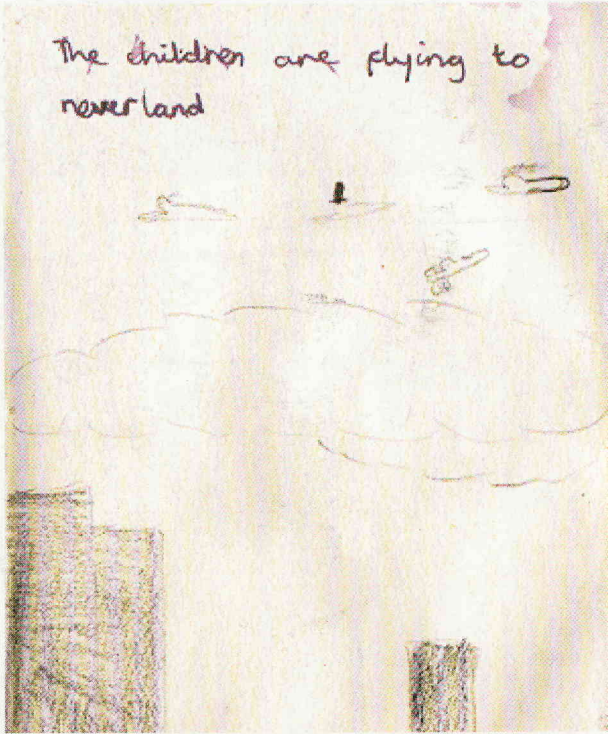 The children are flying to
neverland